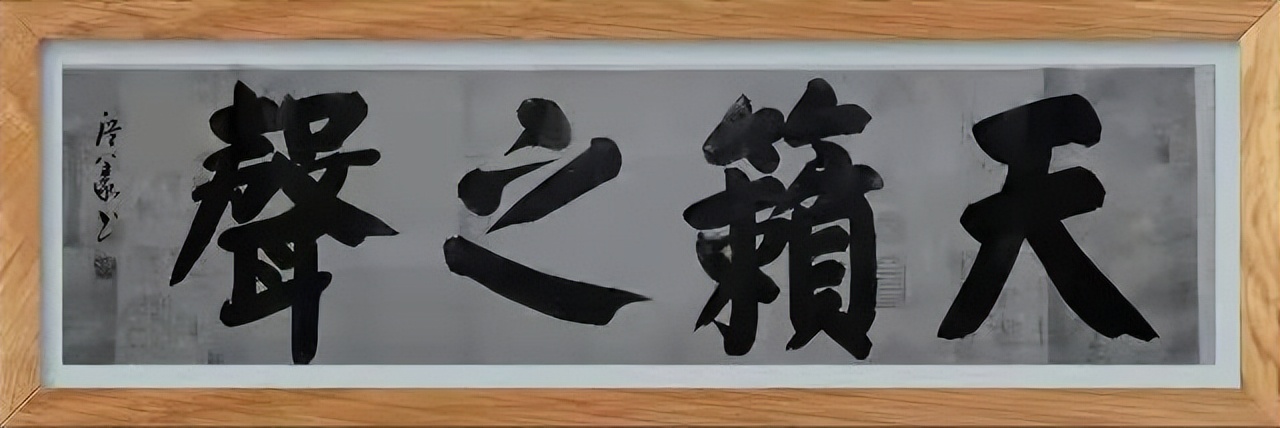 天籟之聲